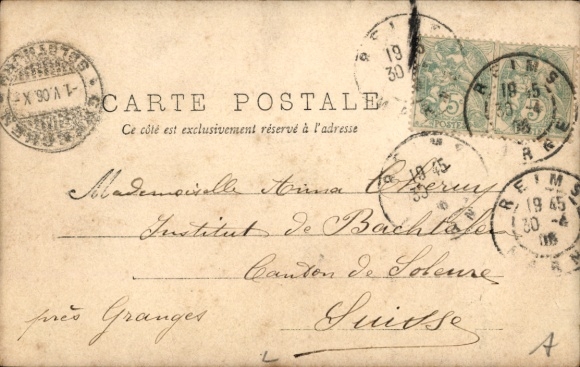 REIMS
19
30
MARNE
REIMS
19 45
30 -4
06
MARNE
5
POSTES
5
-1.V.06.X-
GRENCHEN
CARTE POSTALE
Ce côté est exclusivement réservé à l'adresse
19 45
30
REIMS
19 45
30 -4
06
MARNE
Mademoiselle Anna
Institut de Bachtalen
Canton de Soleure
près Granges Suisse
A